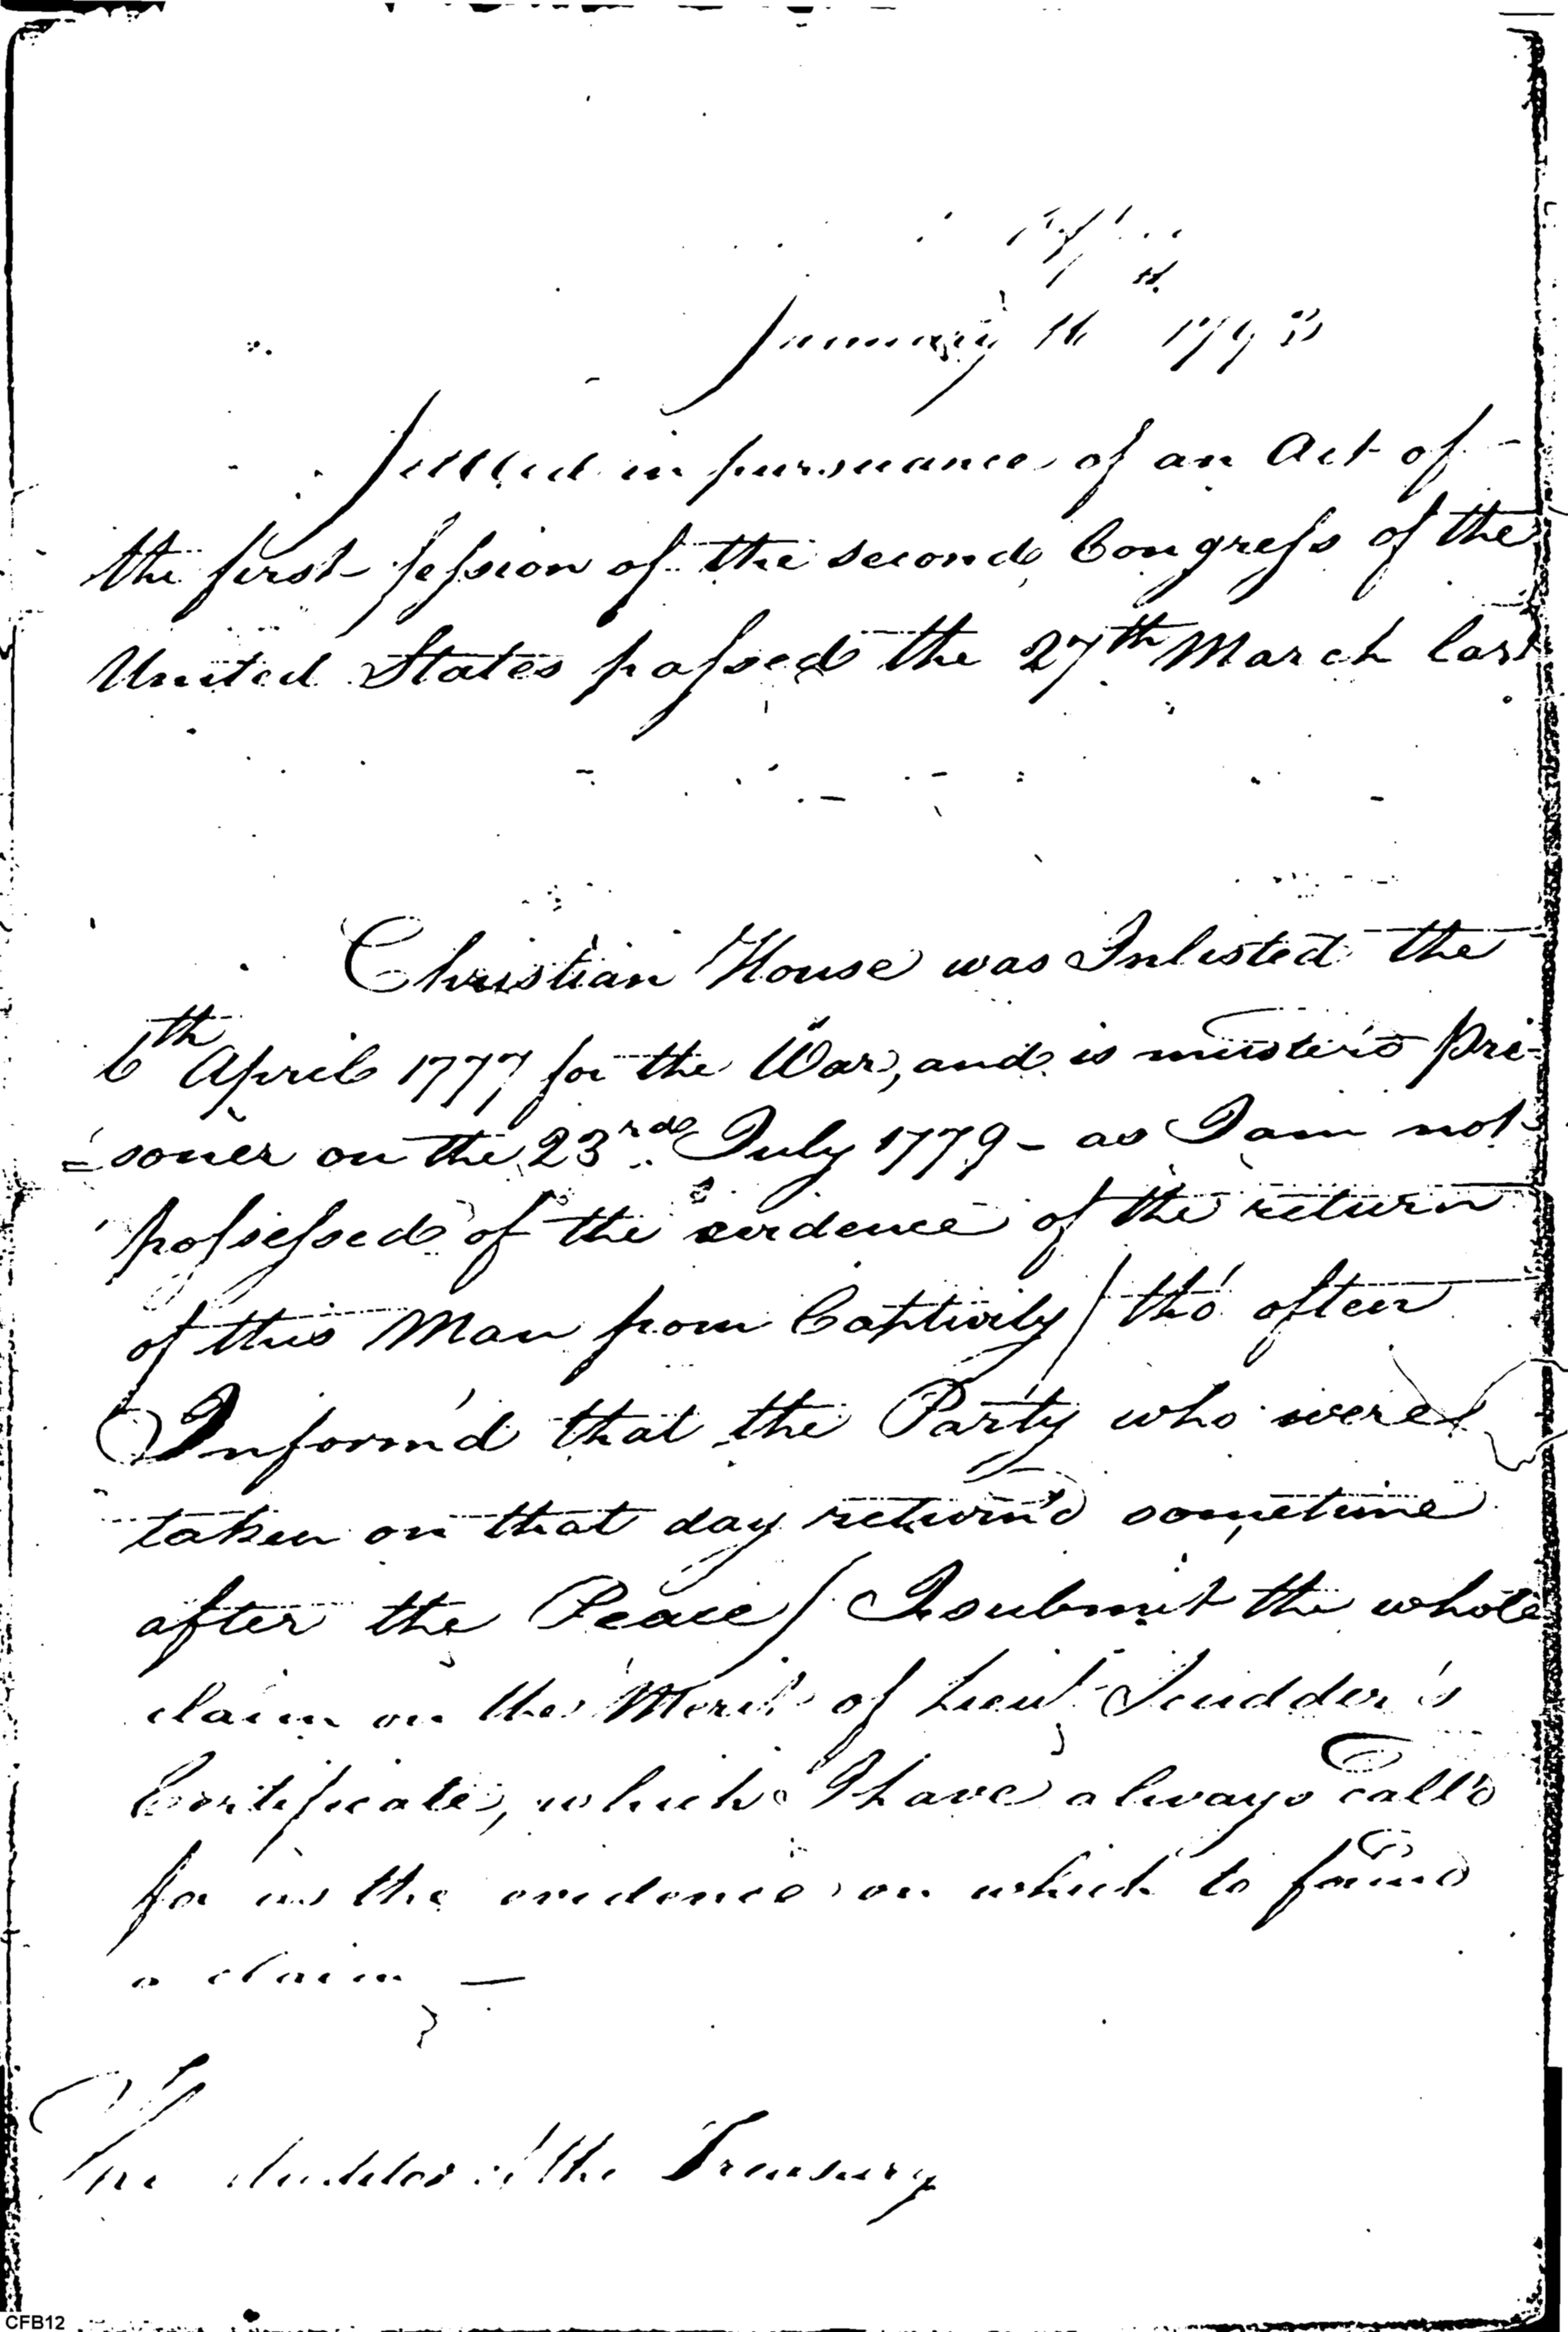 January 16 179
Settled in pursuance of an Act of
the first Session of the second Congress of the
United States passed the 27th March last
Christian House was Inlisted the
6th April 1777 for the War, and is muster'd Pri-
=soner on the 23rd July 1779 - as I am not
possessed of the evidence of the return
of this Man from Captivity / tho' often
Inform'd that the Party who were
taken on that day return'd sometime
after the Peace / I submit the whole
claim on the Merit of Lieut Scudder's
Certificate, which I have always call'd
for as the evidence on which to found
a claim —
The Auditor of the Treasury
CFB12